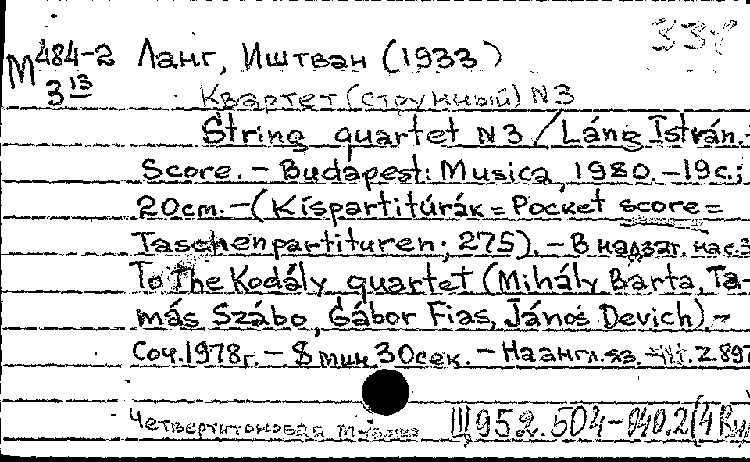 338
М 484-2 Ланг, Иштван (1933)
3 13
Квартет (струнный) N3
String quartet N3 / Láng István.
Score. – Budapest: Musica, 1980. – 19с.;
20cm. – (Kispartitúrák = Pocket score =
Taschenpartituren; 275). – В надзаг. нас.з
To the Kodály quartet (Mihály Barta, Ta-
más Szábo, Gábor Fias, János Devich). –
Соч. 1978г. – 8 мин. 30 сек. – На англ. яз. Z.897
Четвертитоновая музыка Щ952.504-040.2(4Ву)